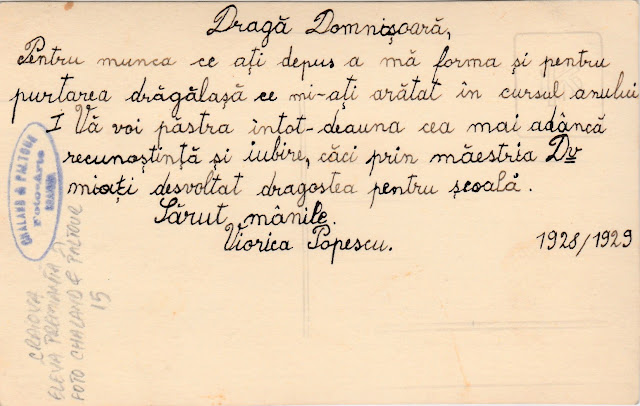 Dragă Domnișoară,
Pentru munca ce ați depus a mă forma și pentru
purtarea drăgălașă ce mi-ați arătat în cursul anului
I Vă voi păstra întot-deauna cea mai adâncă
recunoștință și iubire, căci prin măestria Dv
miați desvoltat dragostea pentru școală.
Sărut mânile.
Viorica Popescu.
1928/1929
CHALAND & PALTOUR
Foto-Arta
CRAIOVA
CRAIOVA
ELEVA PREMIANTĂ
FOTO CHALAND & PALTOUR
15